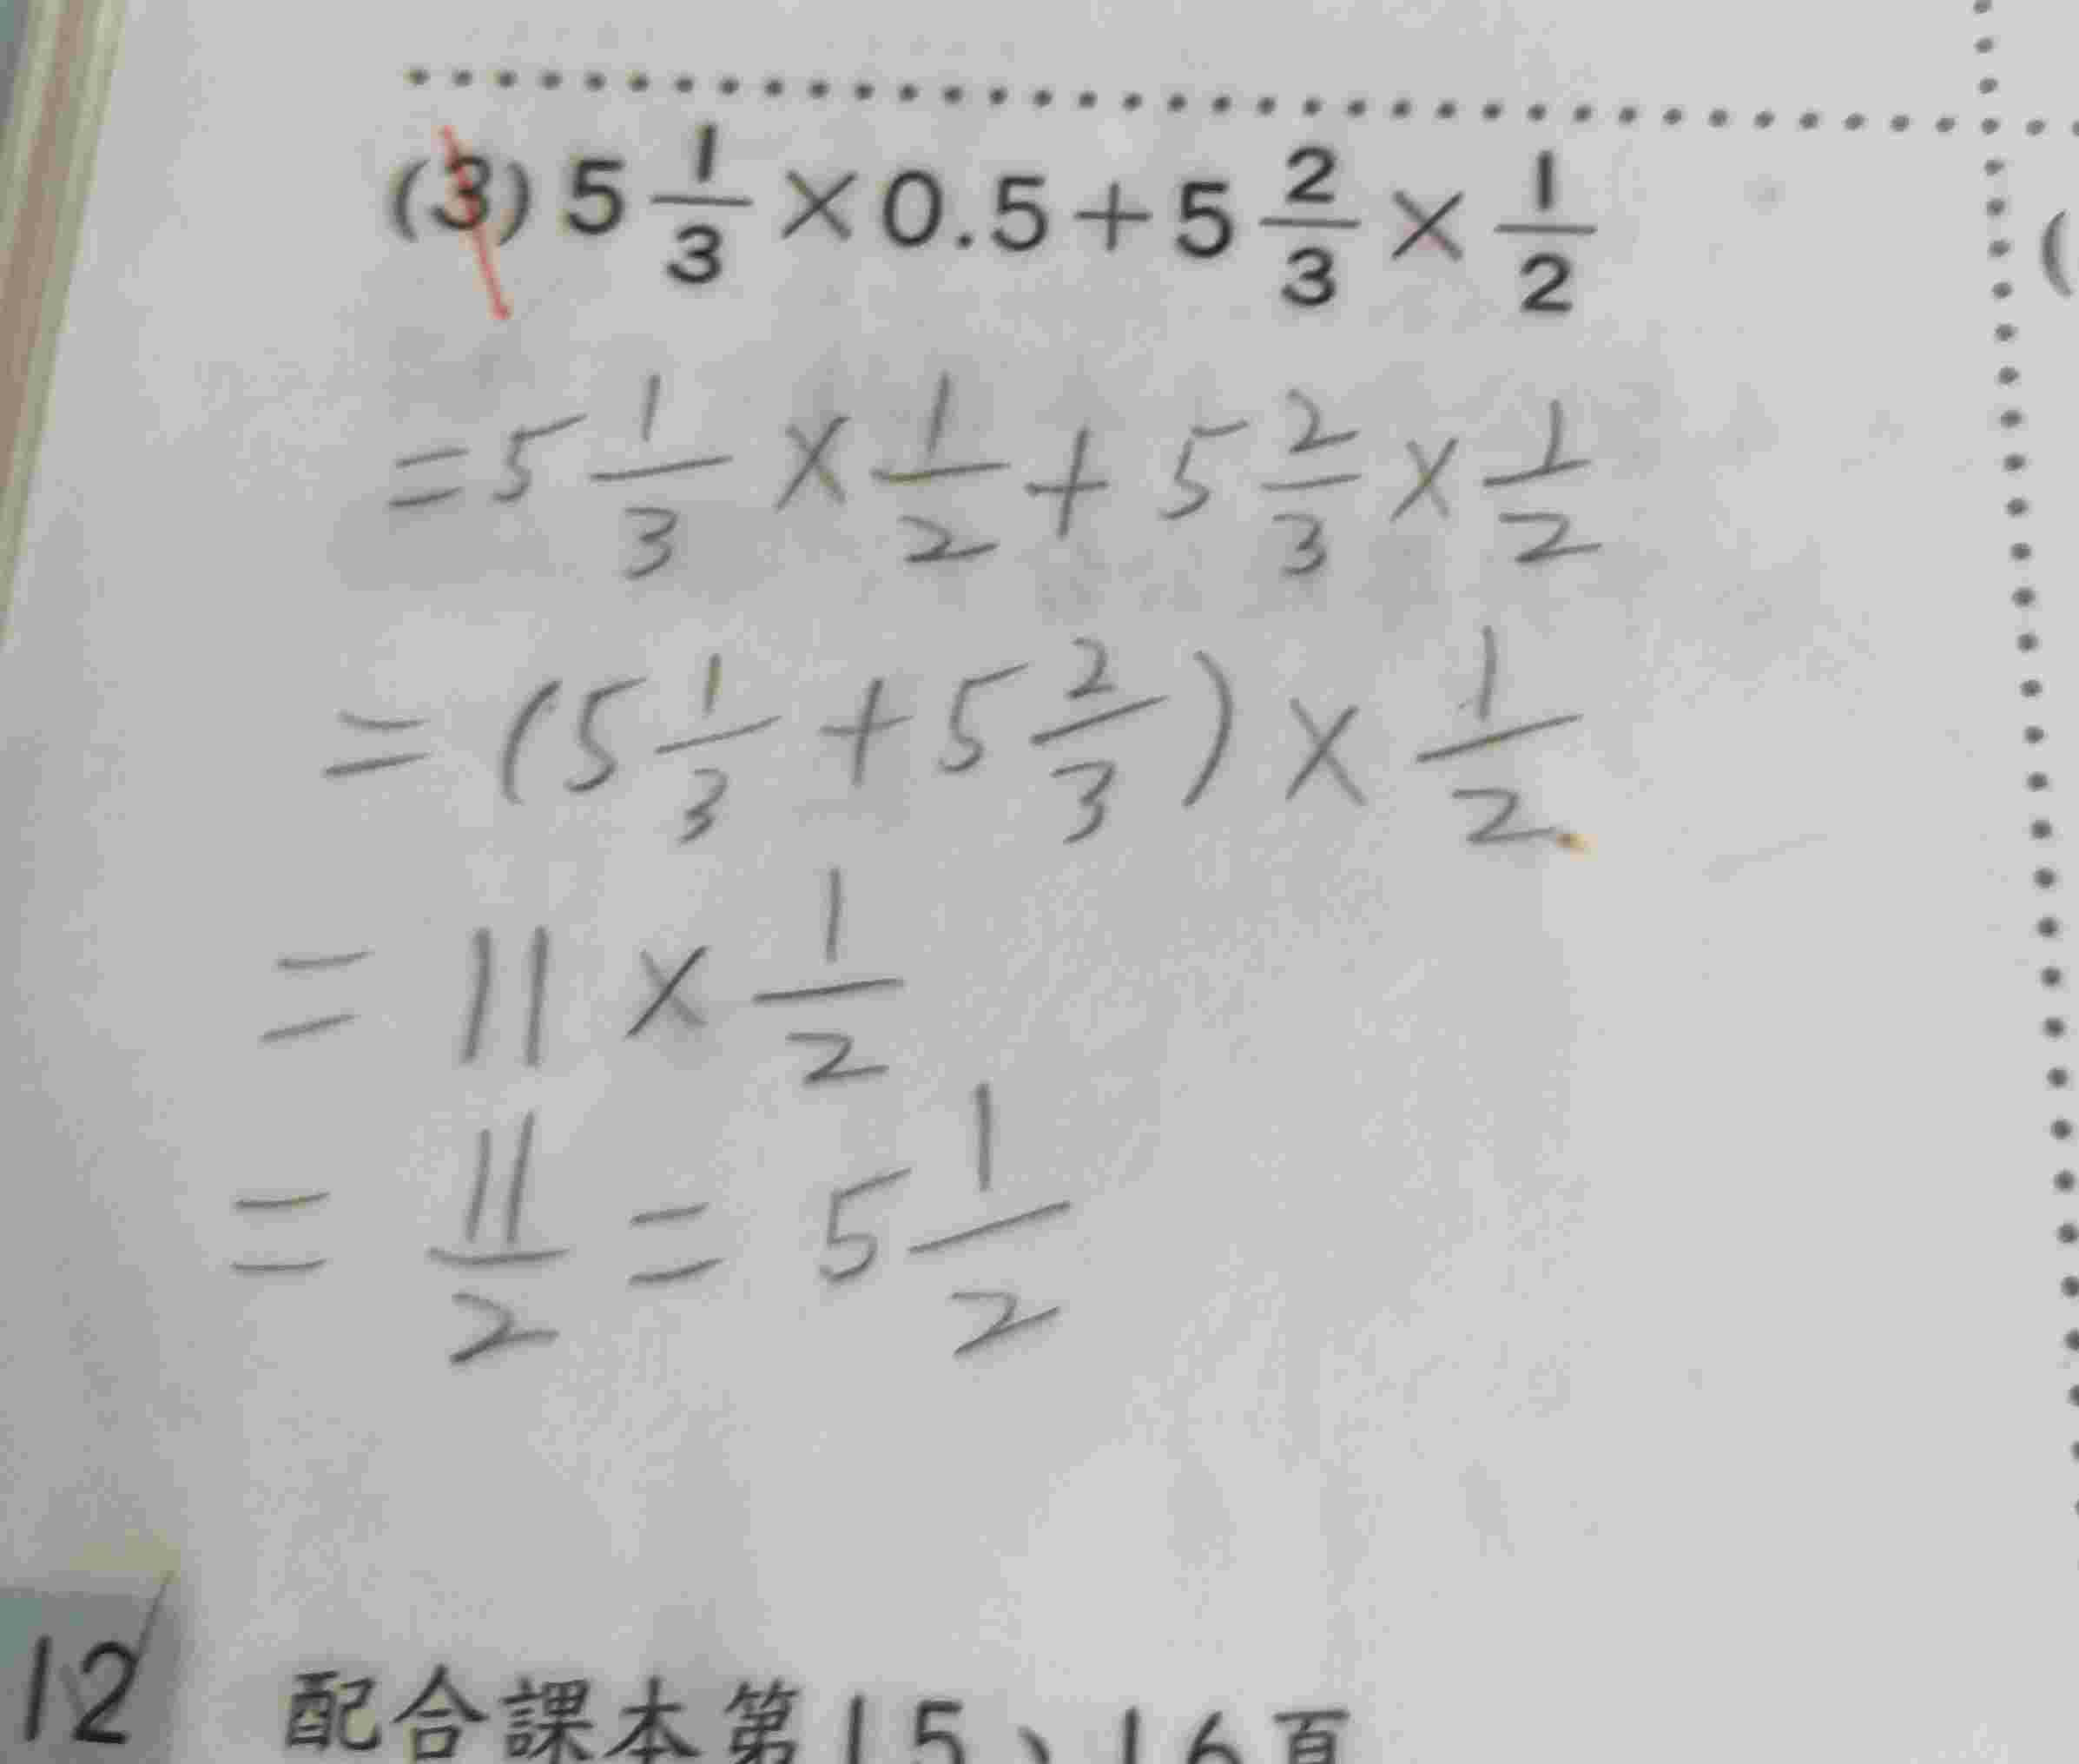 (3) 5 1/3 × 0.5 + 5 2/3 × 1/2
= 5 1/3 × 1/2 + 5 2/3 × 1/2
= (5 1/3 + 5 2/3) × 1/2
= 11 × 1/2
= 11/2 = 5 1/2
12 配合課本第15、16頁